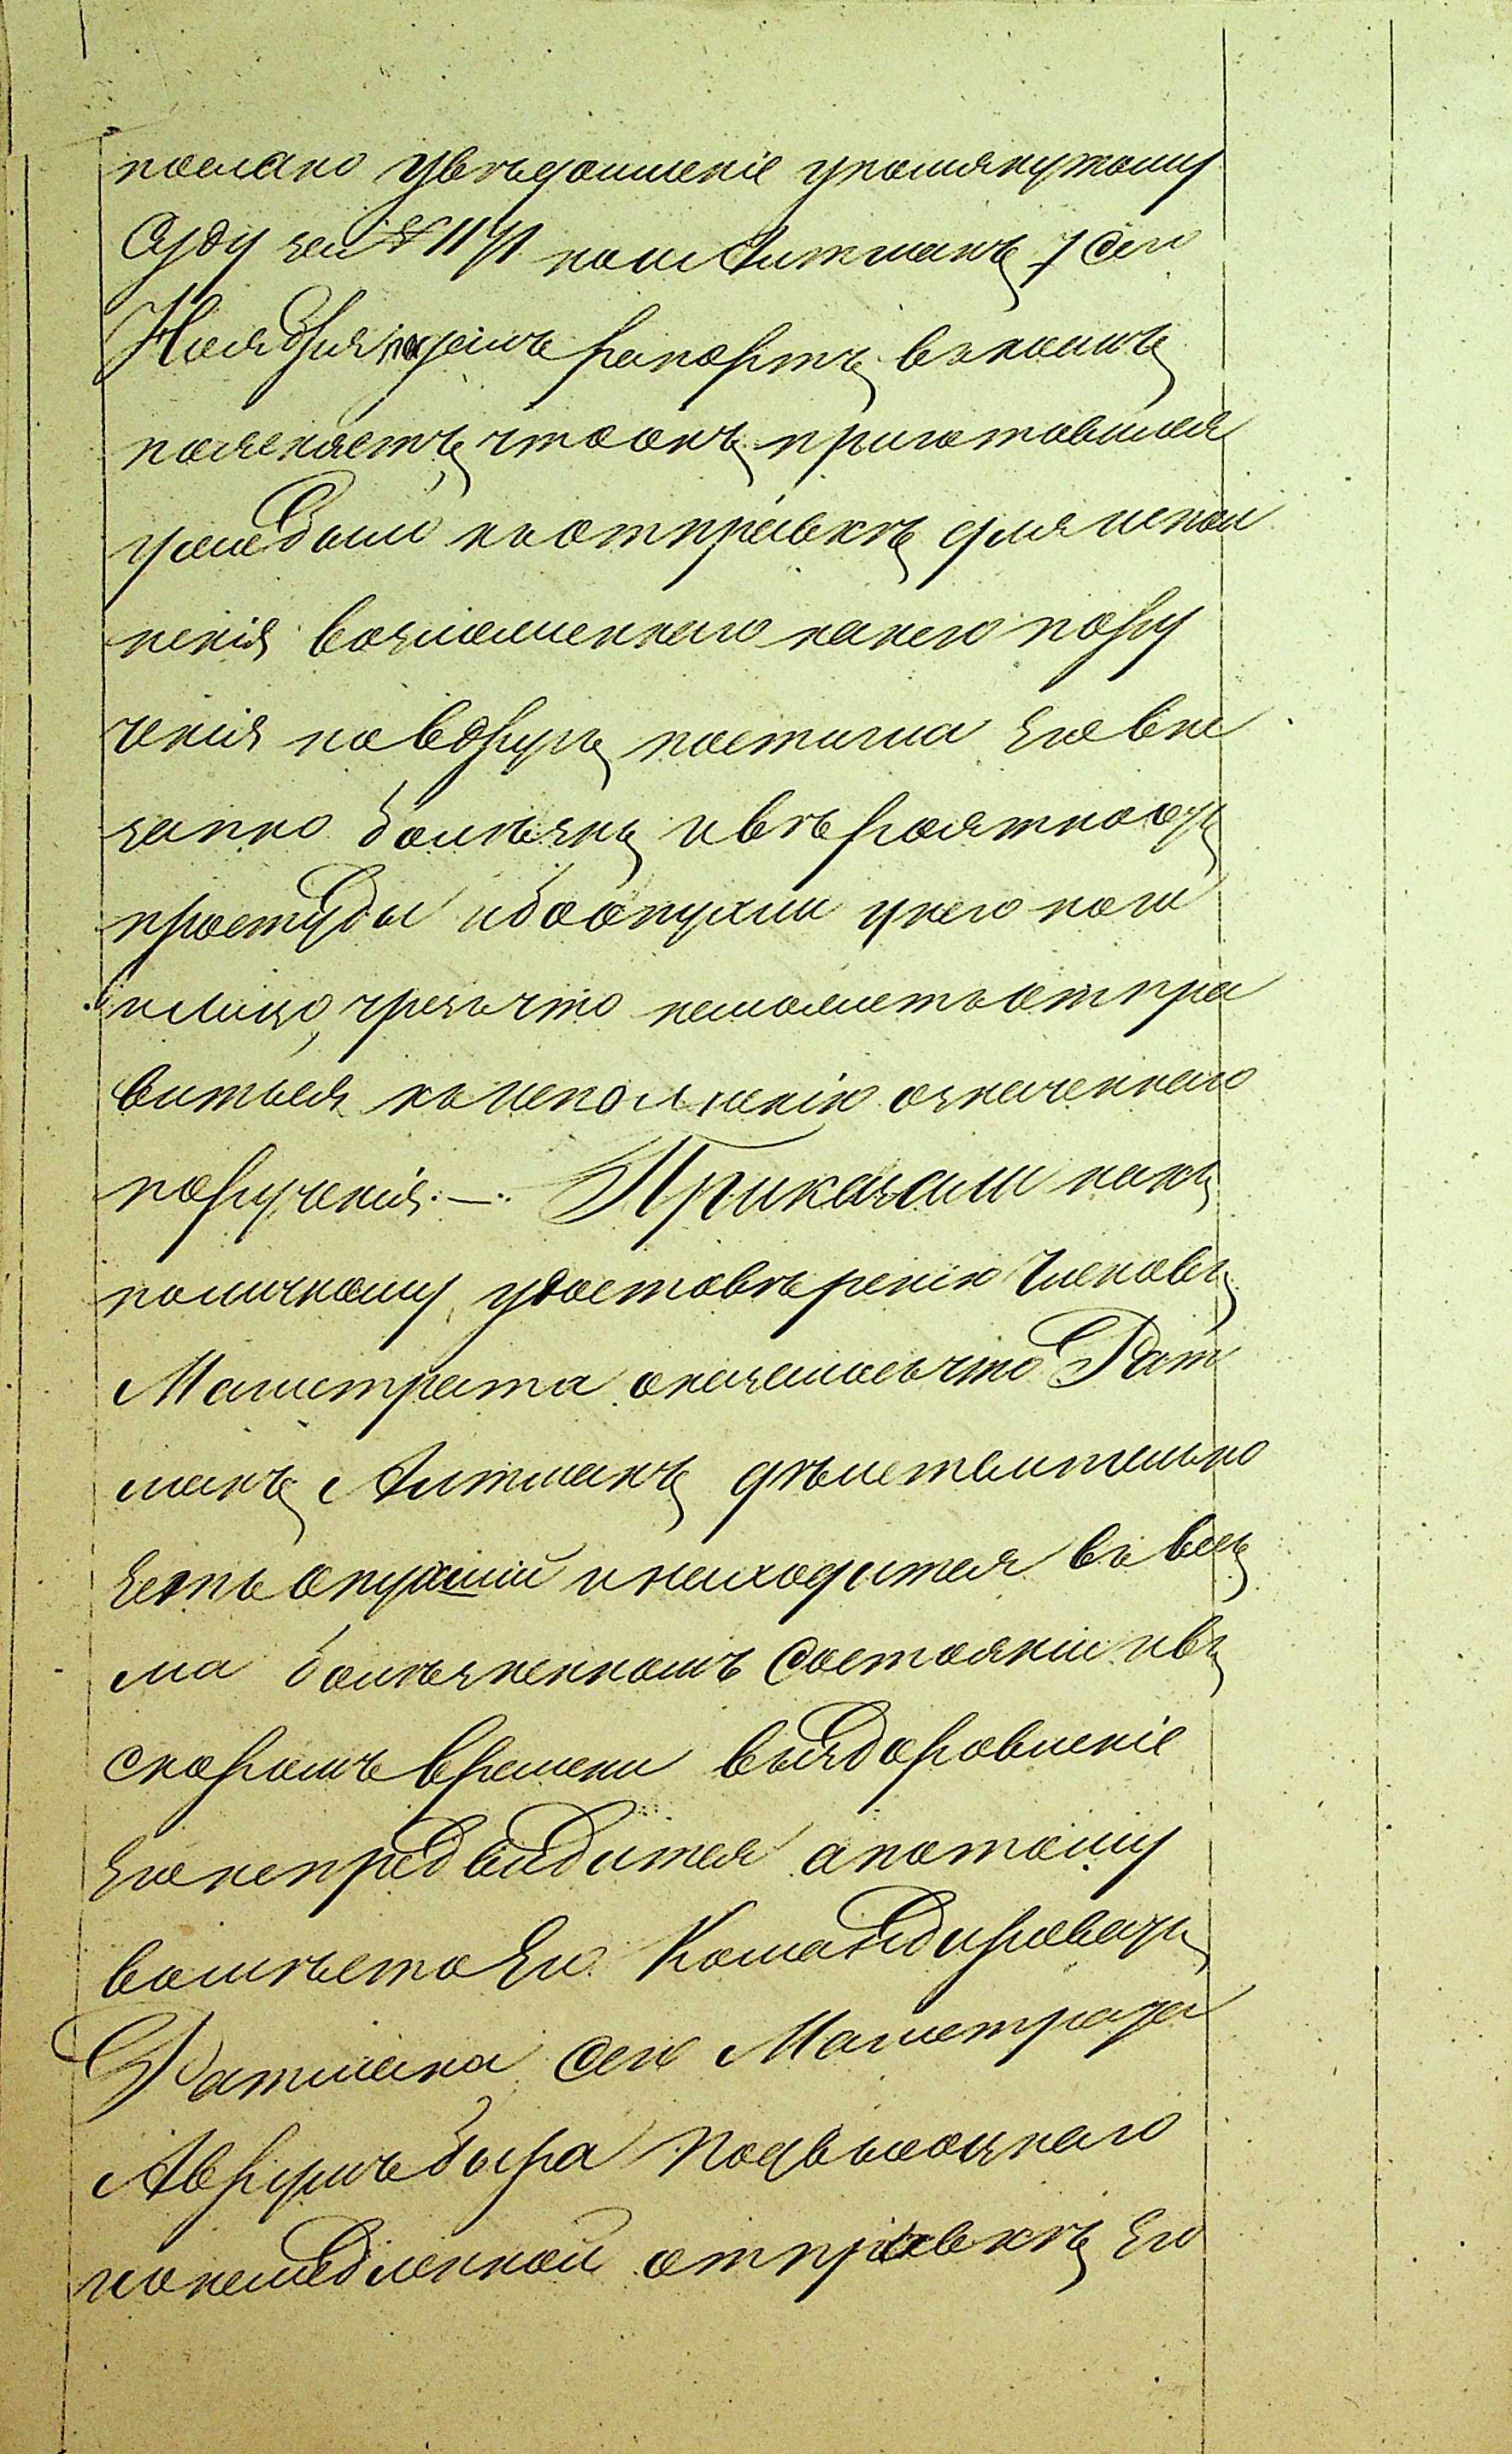 послано увѣдомленіе упомянутому
Суду за № 1171 но Литманъ 7 сего
Ноября подалъ рапортъ въ коемъ
поясняетъ, что онъ приготовился
уже было къ отправкѣ для испол
ненія возложеннаго на него пору
ченія но вдругъ постигла его вне
запно болѣзнь и вѣроятно отъ
простуды ибо опухли у него ноги
и лицо, чрезъ что не можетъ отпра
виться къ исполненію означеннаго
порученія. —. Приказали какъ
по личному удостовѣренію Членовъ
Магистрата оказалось что Рат
манъ Литманъ дѣйствительно
есть опухшій и находится въ весь
ма болѣзненномъ состояніи и въ
скоромъ времени выздоровленіе
его не предвидится а потому
вомѣсто его Командировать
Ратмана сего Магистрата
Аврумъ Бера Подвысоцкаго
о немедленной отправкѣ его